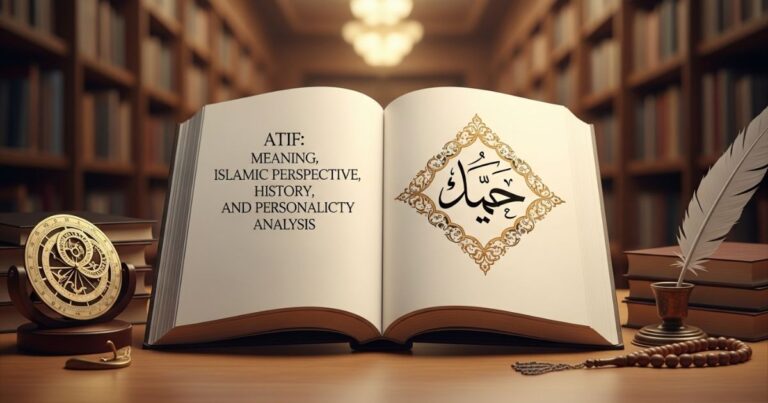 ATIF:
MEANING,
ISLAMIC PERSPECTIVE,
HISTORY,
AND PERSONALICTY
ANALYSIS